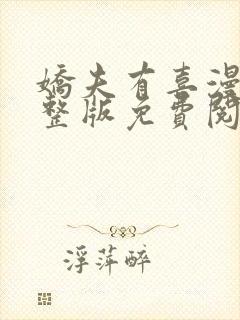 嬌夫有喜漫
整版免費閱
浮萍醉